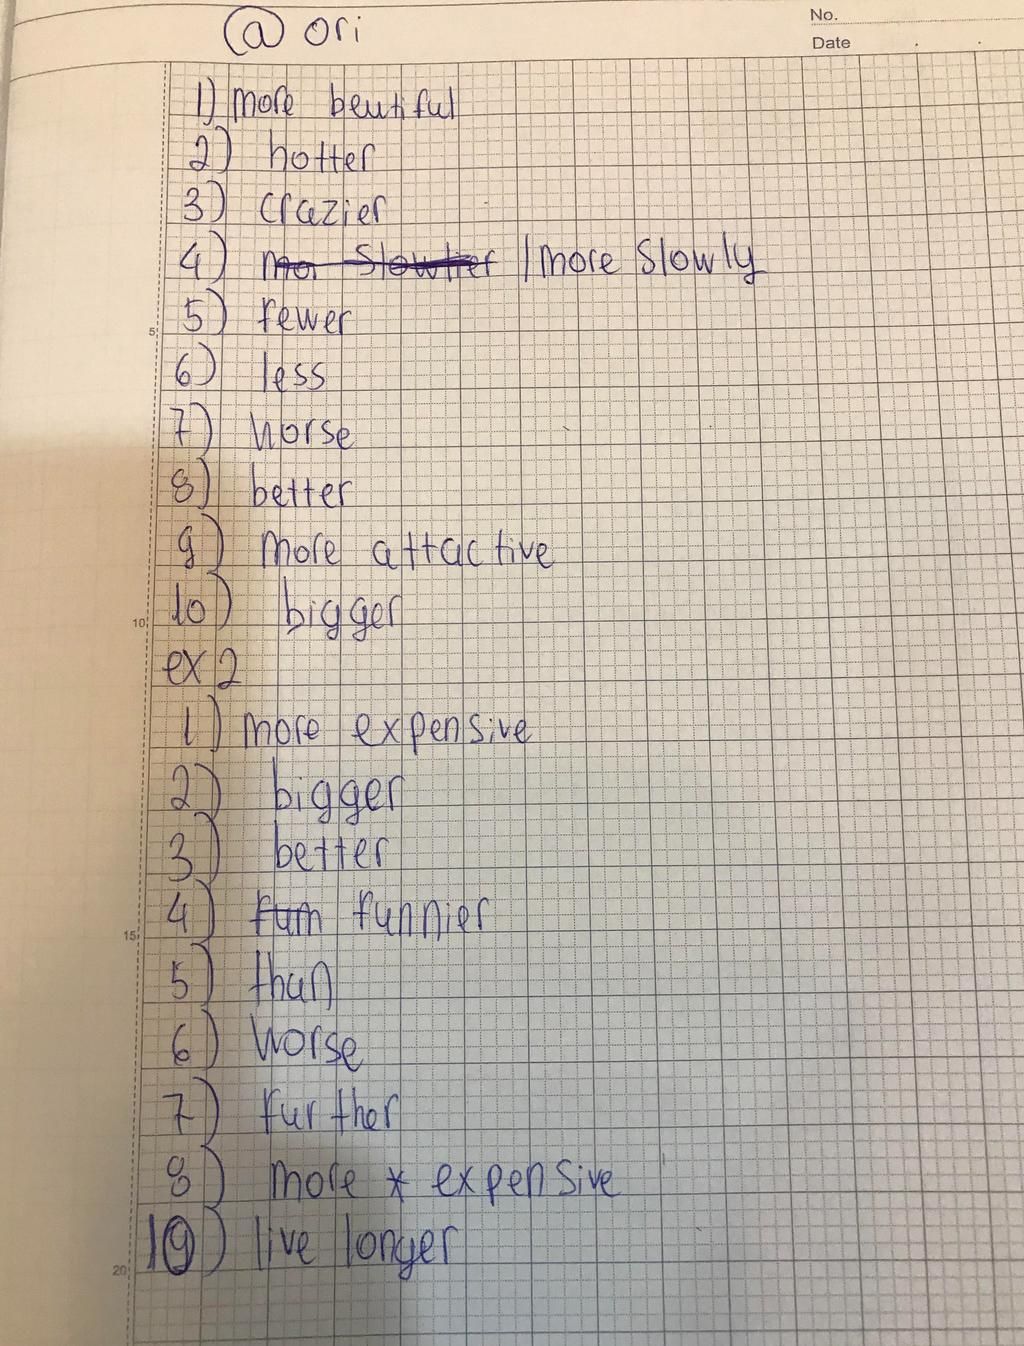 @ ori
No.
Date
1) more beutiful
2) hotter
3) crazier
4) mor Slowlier / more Slowly
5) fewer
5
6) less
7) worse
8) better
9) more attactive
10) bigger
10
ex 2
1) more expensive
2) bigger
3) better
4) fum funnier
15
5) than
6) Worse
7) further
8) more * expensive
10) live longer
20